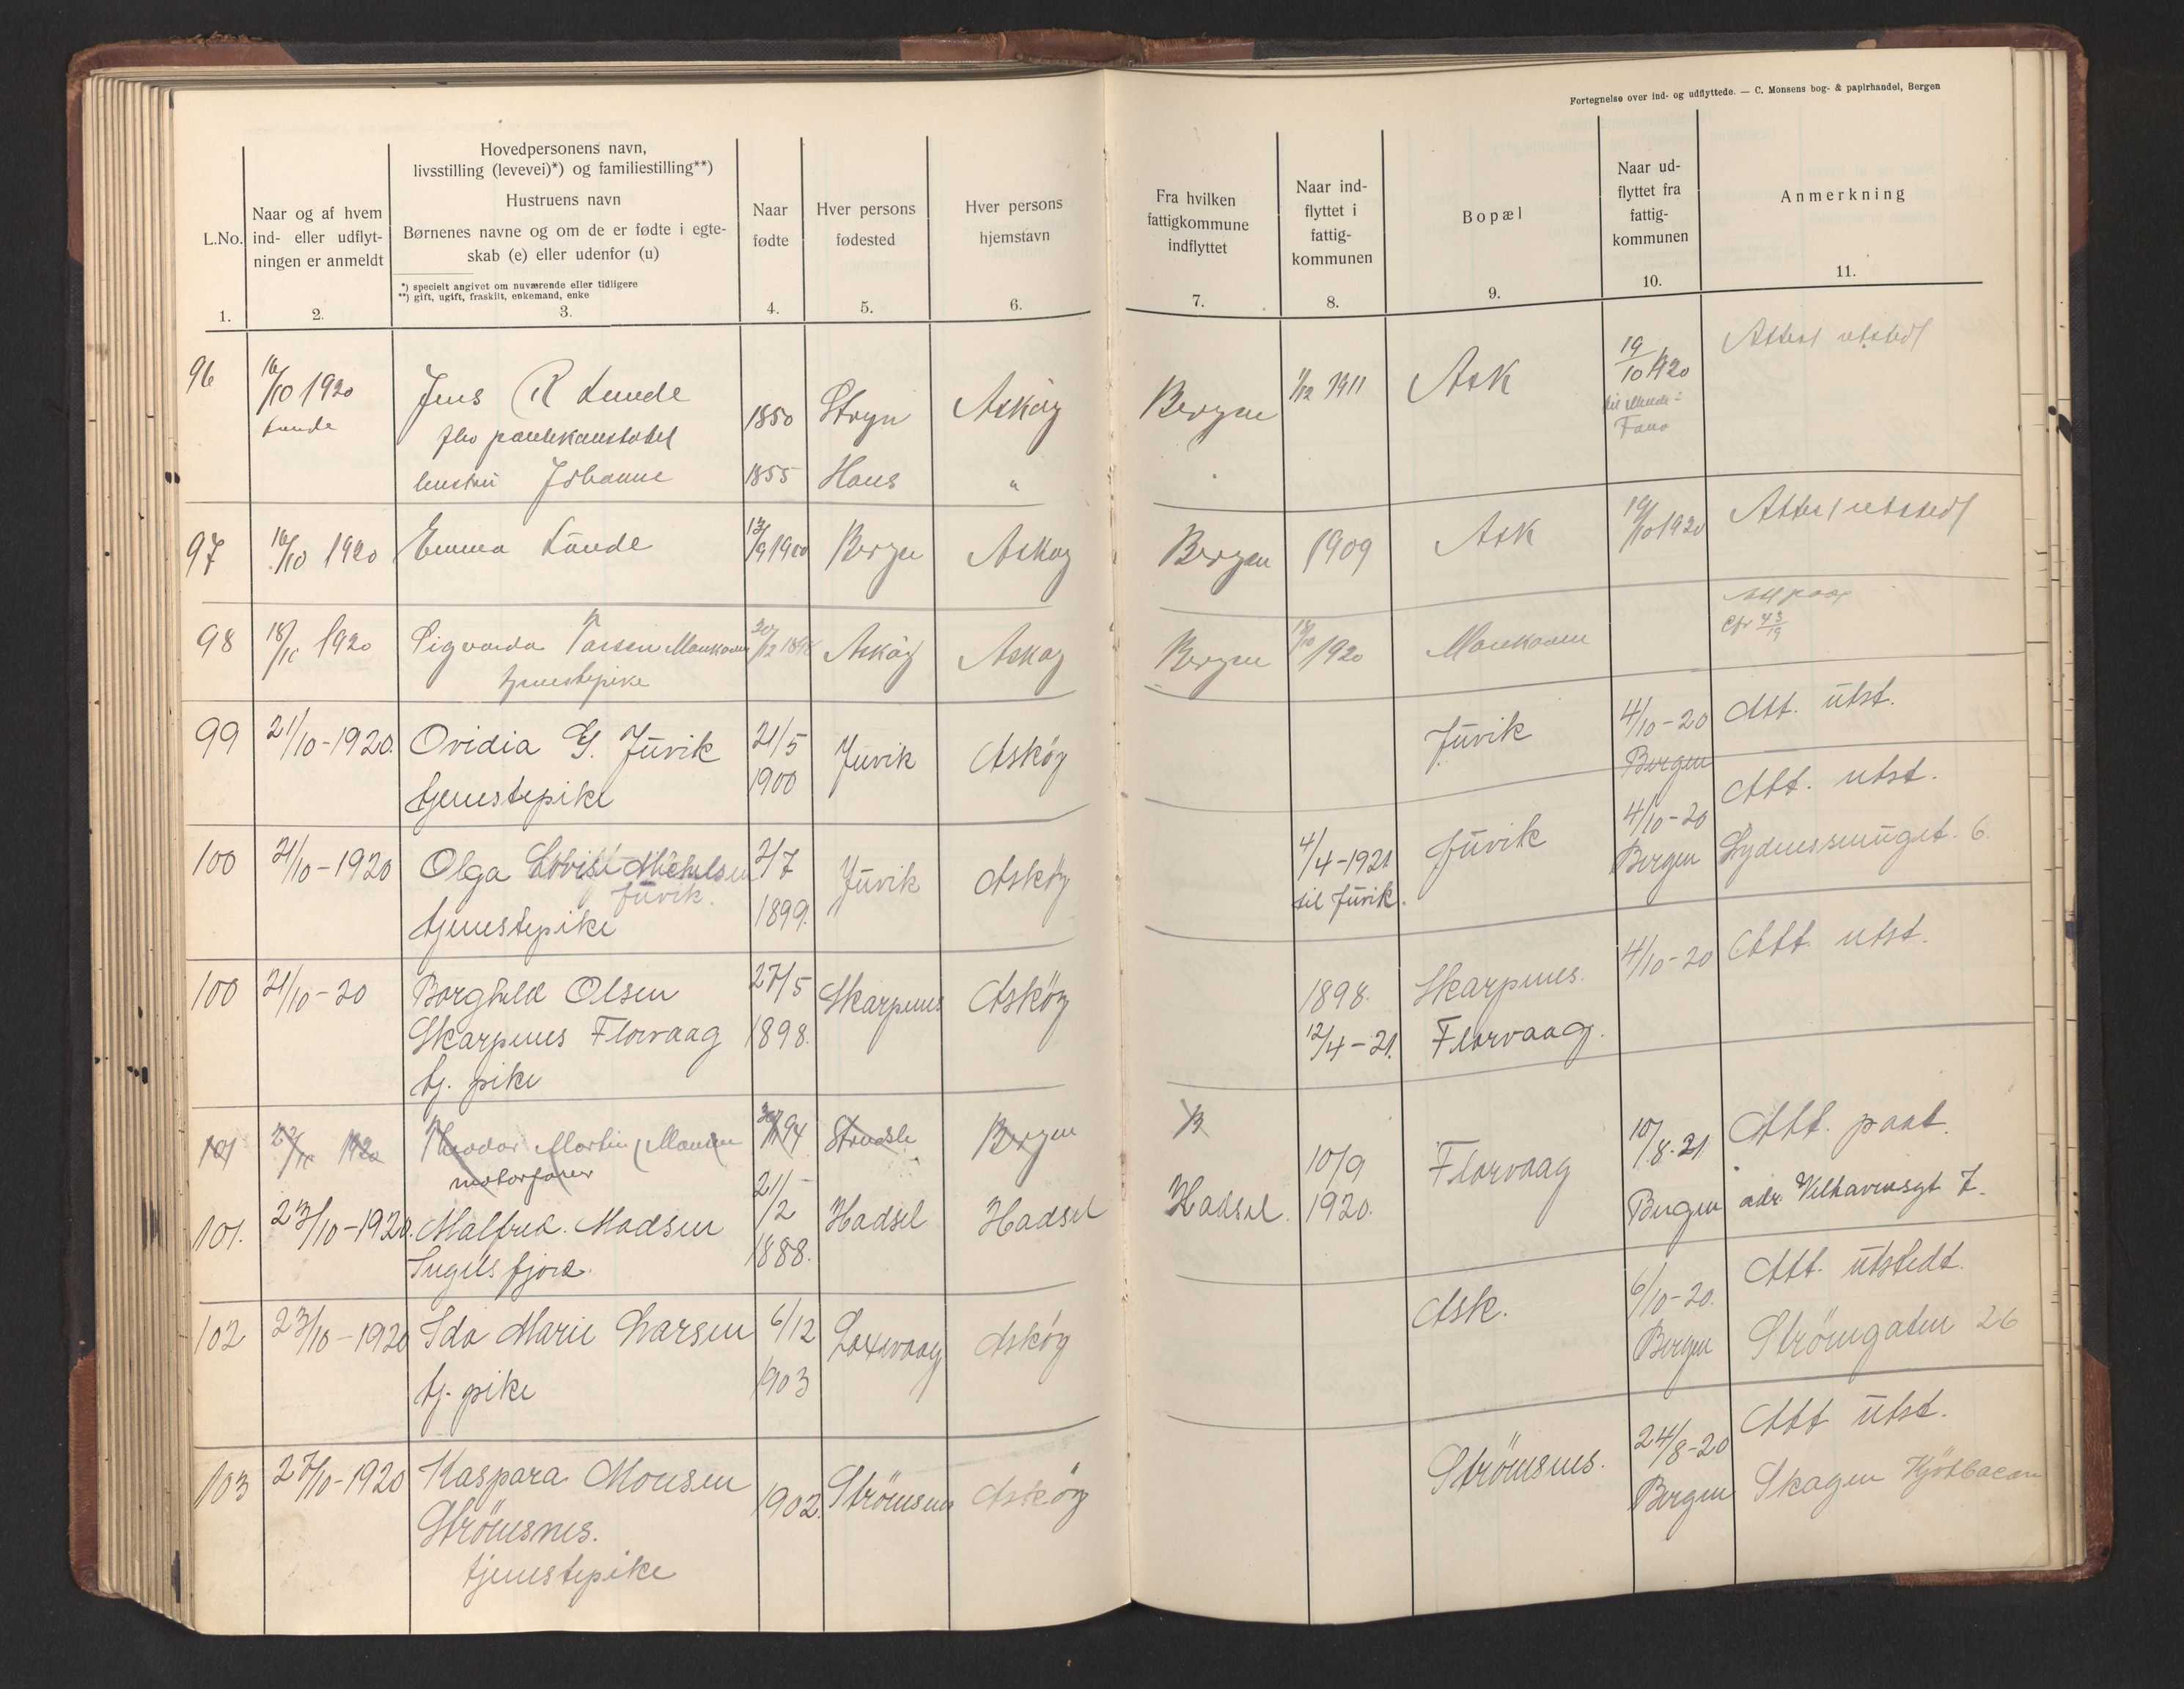 Fortegnelse over ind- og udflyttede. — C. Monsens bog- & papirhandel, Bergen
L.No.
1.
Naar og af hvem
ind- eller udflyt-
ningen er anmeldt
2.
Hovedpersonens navn,
livsstilling (levevei)*) og familiestilling**)
Hustruens navn
Børnenes navne og om de er fødte i egte-
skab (e) eller udenfor (u)
*) specielt angivet om nuværende eller tidligere
**) gift, ugift, fraskilt, enkemand, enke
3.
Naar
fødte
4.
Hver persons
fødested
5.
Hver persons
hjemstavn
6.
Fra hvilken
fattigkommune
indflyttet
7.
Naar ind-
flyttet i
fattig-
kommunen
8.
Bopæl
9.
Naar ud-
flyttet fra
fattig-
kommunen
10.
Anmerkning
11.
96 16/10 1920 Jens R Lunde 1850 Stryn Askøy Bergen 1/12 1911 Ask 19/10 1920 Attest utstedt
Lunde
Fana
hustru Johanne 1855 Haus "
97 16/10 1920 Emma Lunde 13/9 1900 Bergen Askøy Bergen 1909 Ask 19/10 1920 Attest utstedt
98 18/10 1920 Sigvarda 1898 Askøy Askøy Bergen 1920
cfr 43/19
tjenestepike
99 21/10-1920. Ovidia G. Juvik 21/5 1900 Juvik Askøy Juvik 4/10-20 Bergen Att. utst.
tjenestepike
100 21/10-1920 Olga Lovise Michelsen 2/7 1899. Juvik Askøy 4/4-1921 til Juvik. Juvik 4/10-20 Bergen Att. utst.
Juvik. Lydersmuget. 6.
tjenestepike
100 21/10-20 Borghild Olsen 27/5 1898. Skarpenes Askøy 1898. Skarpenes. 4/10-20 Att. utst.
Skarpenes Florvaag 12/4-21. Florvaag.
tj. pike
101 1920 Theodor Martin 94 Bergen B
motorfører
101. 23/10-1920. Malfred. Madsen 21/2 1888. Hadsel Hadsel Hadsel. 10/9 1920. Florvaag 10/8-21 Bergen Att. paat.
adr. Velhavensgt 7.
102 23/10-1920 Ida Marie Larsen 6/12 1903 Askøy Ask. 6/10-20. Bergen Att. utstedt.
tj. pike Strömgaten 26
103 27/10-1920 Kaspara Monsen 1902. Strömsnes Askøy Strömsnes. 24/8-20 Bergen Att utst.
Strömsnes. Skagen
tjenestepike